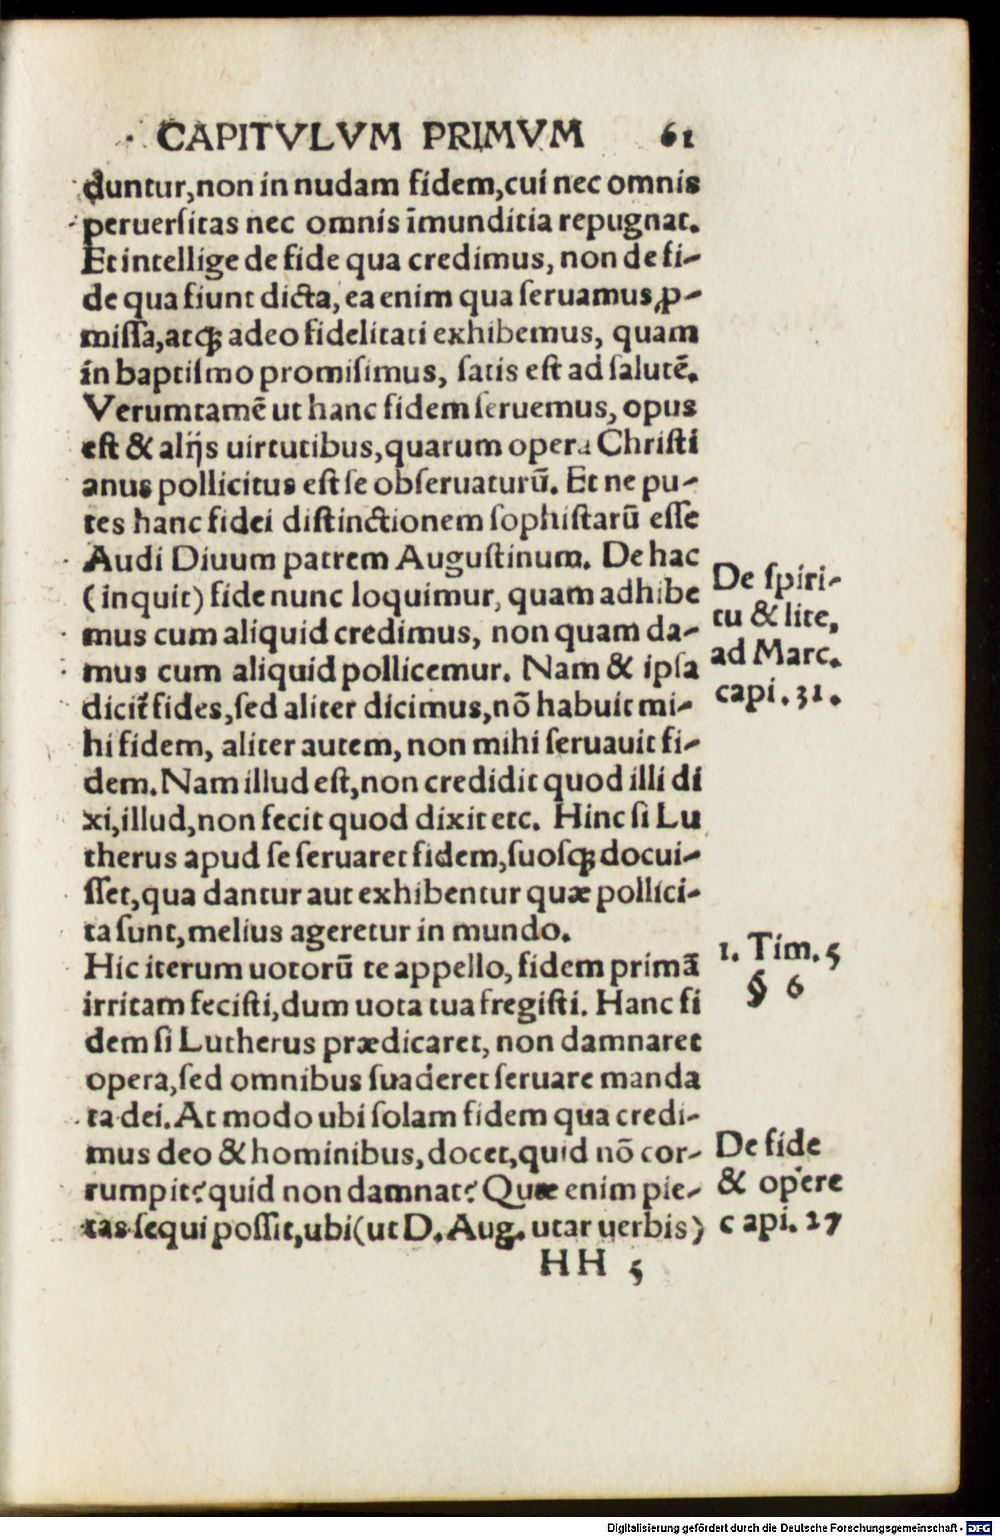 CAPITVLVM PRIMVM 61
duntur,non in nudam fidem,cui nec omnis
peruerſitas nec omnis īmunditia repugnat.
Et intellige de fide qua credimus, non de fi-
de qua fiunt dicta, ea enim qua ſeruamus,ꝓ-
miſſa,atqꝫ adeo fidelitati exhibemus, quam
in baptiſmo promiſimus, ſatis eſt ad ſalutē.
Verumtamē ut hanc fidem ſeruemus, opus
eſt & alijs uirtutibus,quarum opera Chriſti
anus pollicitus eſt ſe obſeruaturū. Et ne pu-
tes hanc fidei diſtinctionem ſophiſtarū eſſe
Audi Diuum patrem Auguſtinum. De hac
(inquit) fide nunc loquimur, quam adhibe
mus cum aliquid credimus, non quam da-
mus cum aliquid pollicemur. Nam & ipſa
dicit᷑ fides,ſed aliter dicimus,nō habuit mi-
hi fidem, aliter autem, non mihi ſeruauit fi-
dem. Nam illud eſt,non credidit quod illi di
xi,illud,non fecit quod dixit etc. Hinc ſi Lu
therus apud ſe ſeruaret fidem,ſuoſqꝫ docui-
ſſet,qua dantur aut exhibentur quæ pollici-
ta ſunt,melius ageretur in mundo.
Hic iterum uotorū te appello, fidem primā
irritam feciſti,dum uota tua fregiſti. Hanc fi
dem ſi Lutherus prædicaret, non damnaret
opera,ſed omnibus ſuaderet ſeruare manda
ta dei. At modo ubi ſolam fidem qua credi-
mus deo & hominibus, docet,quid nō cor-
rumpit? quid non damnat? Quæ enim pie-
tas ſequi poſſit,ubi(ut D. Aug. utar uerbis)
HH 5
De ſpiri-
tu & lite,
ad Marc.
capi. 31.
1. Tim. 5
§ 6
De fide
& opere
capi. 27
Digitalisierung gefördert durch die Deutsche Forschungsgemeinschaft - DFG